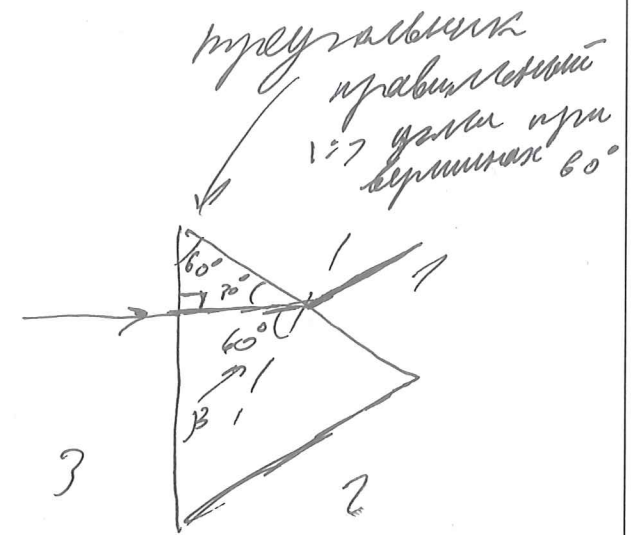 треугольник
правильный
1=> углы при
вершинах 60°
60°
30°
1
60°
β
3
2